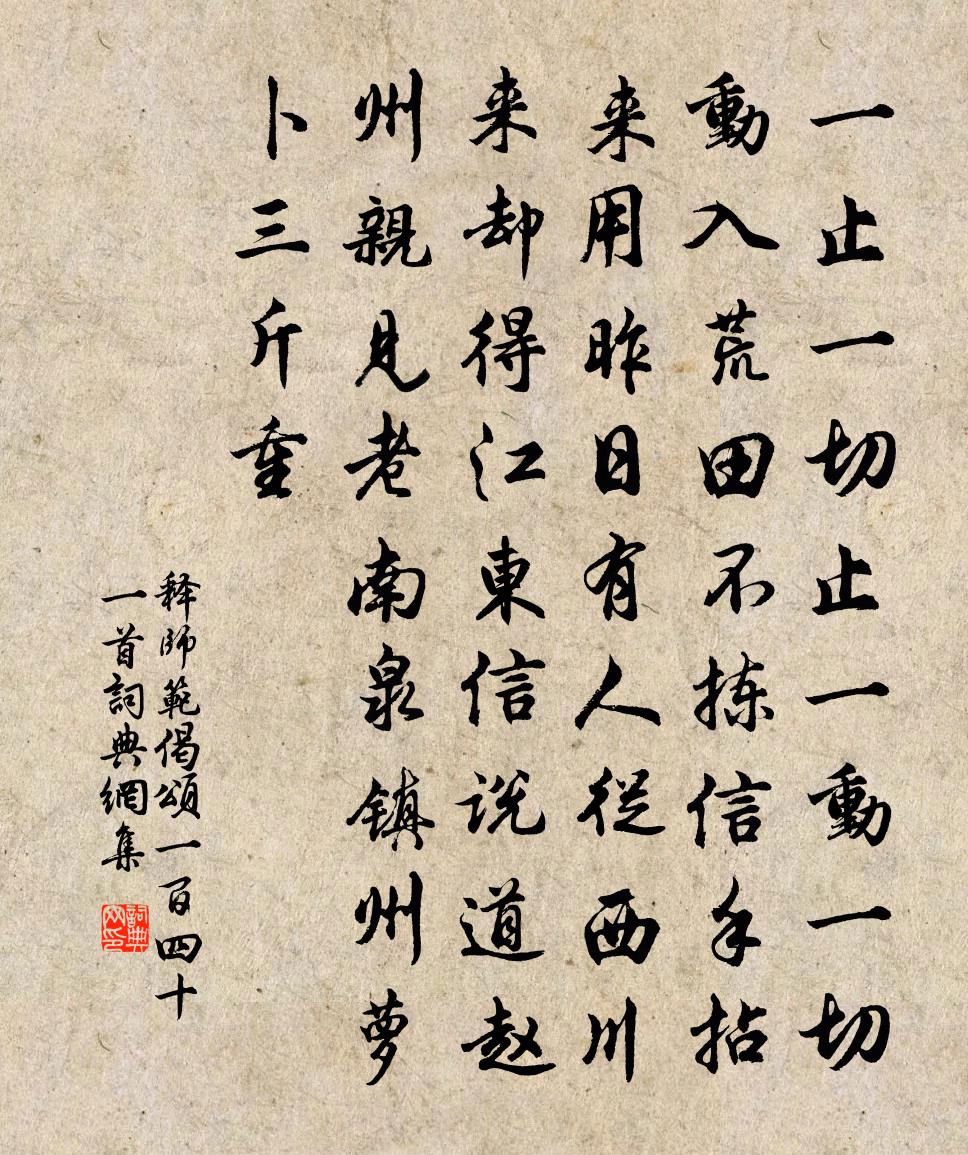 一止一切止一動一切
動入荒田不拣信手拈
来用昨日有人從西川
来却得江東信说道赵
州親見老南泉镇州萝
卜三斤重
释師範偈頌一百四十
一首詞典網集
詞典网印